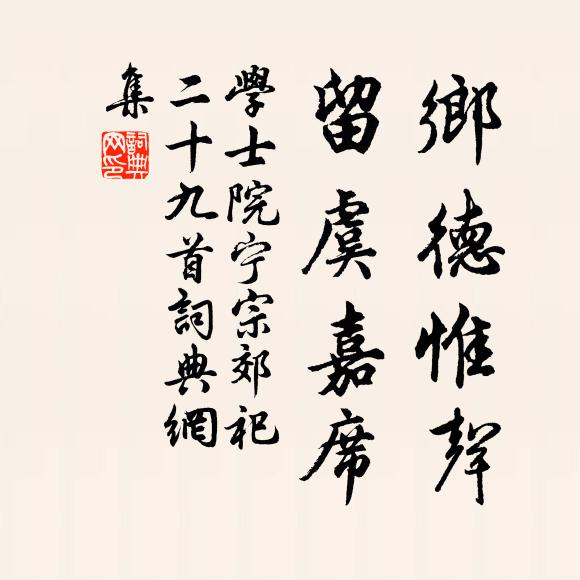 鄉德惟聲
留虞嘉席
學士院宁宗郊祀
二十九首詞典網
集
詞典網印